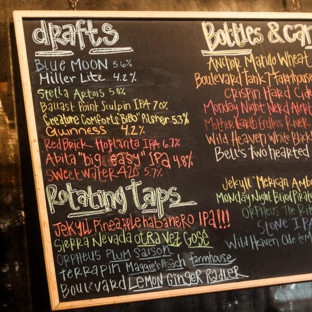 drafts
Blue Moon 5.6%
Miller Lite 4.2%
Stella Artois 5.0%
Ballast Point Sculpin IPA 7.0%
Creature Comforts Bibo Pilsner 5.3%
Guinness 4.2%
Red Brick Hoplanta IPA 6.7%
Abita "big easy" IPA 4.8%
Sweetwater 420 5.7%
Rotating Taps
Jekyll Pineapple habanero IPA!!!
Sierra Nevada Otra Vez Gose
Orpheus Plum Saison
Terrapin Maggie's Peach farmhouse
Boulevard Lemon Ginger Radler
Bottles & Can
Anchor Mango Wheat
Boulevard Tank 7 Farmhouse
Crispin Hard Cide
Monday Night Nerd Alert
Mother Earth Endless River
Wild Heaven White Black
Bell's Two hearted
Jekyll 'Merican Amb
Monday Night Blind Pirate
Orpheus The
Stone IPA
Wild Heaven Ode to